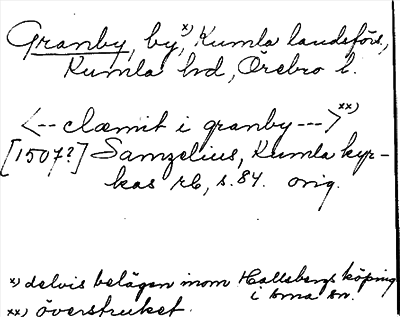 Granby, by,x) Kumla landsförs.,
Kumla hd, Örebro l.
<-- clæmit i granby --->xx)
[1507?] Samzelius, Kumla kyr-
kas rb, s. 84. orig.
x) delvis belägen inom Hallsbergs köping
i sma sn.
xx) överstruket.